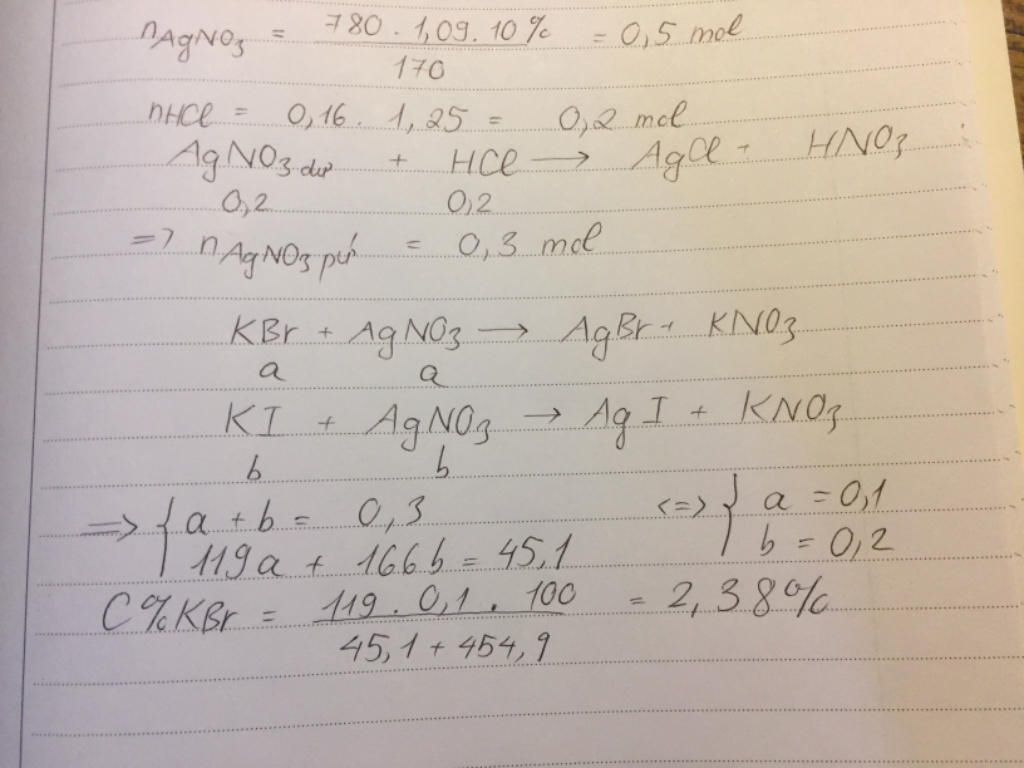 nAgNO3 = 780 . 1,09 . 10% / 170 = 0,5 mol
nHCl = 0,16 . 1,25 = 0,2 mol
AgNO3 dư + HCl → AgCl + HNO3
0,2 0,2
=> nAgNO3 pứ = 0,3 mol
KBr + AgNO3 → AgBr + KNO3
a a
KI + AgNO3 → AgI + KNO3
b b
=> { a + b = 0,3 <=> { a = 0,1
119a + 166b = 45,1 b = 0,2
C%KBr = 119 . 0,1 . 100 / 45,1 + 454,9 = 2,38%